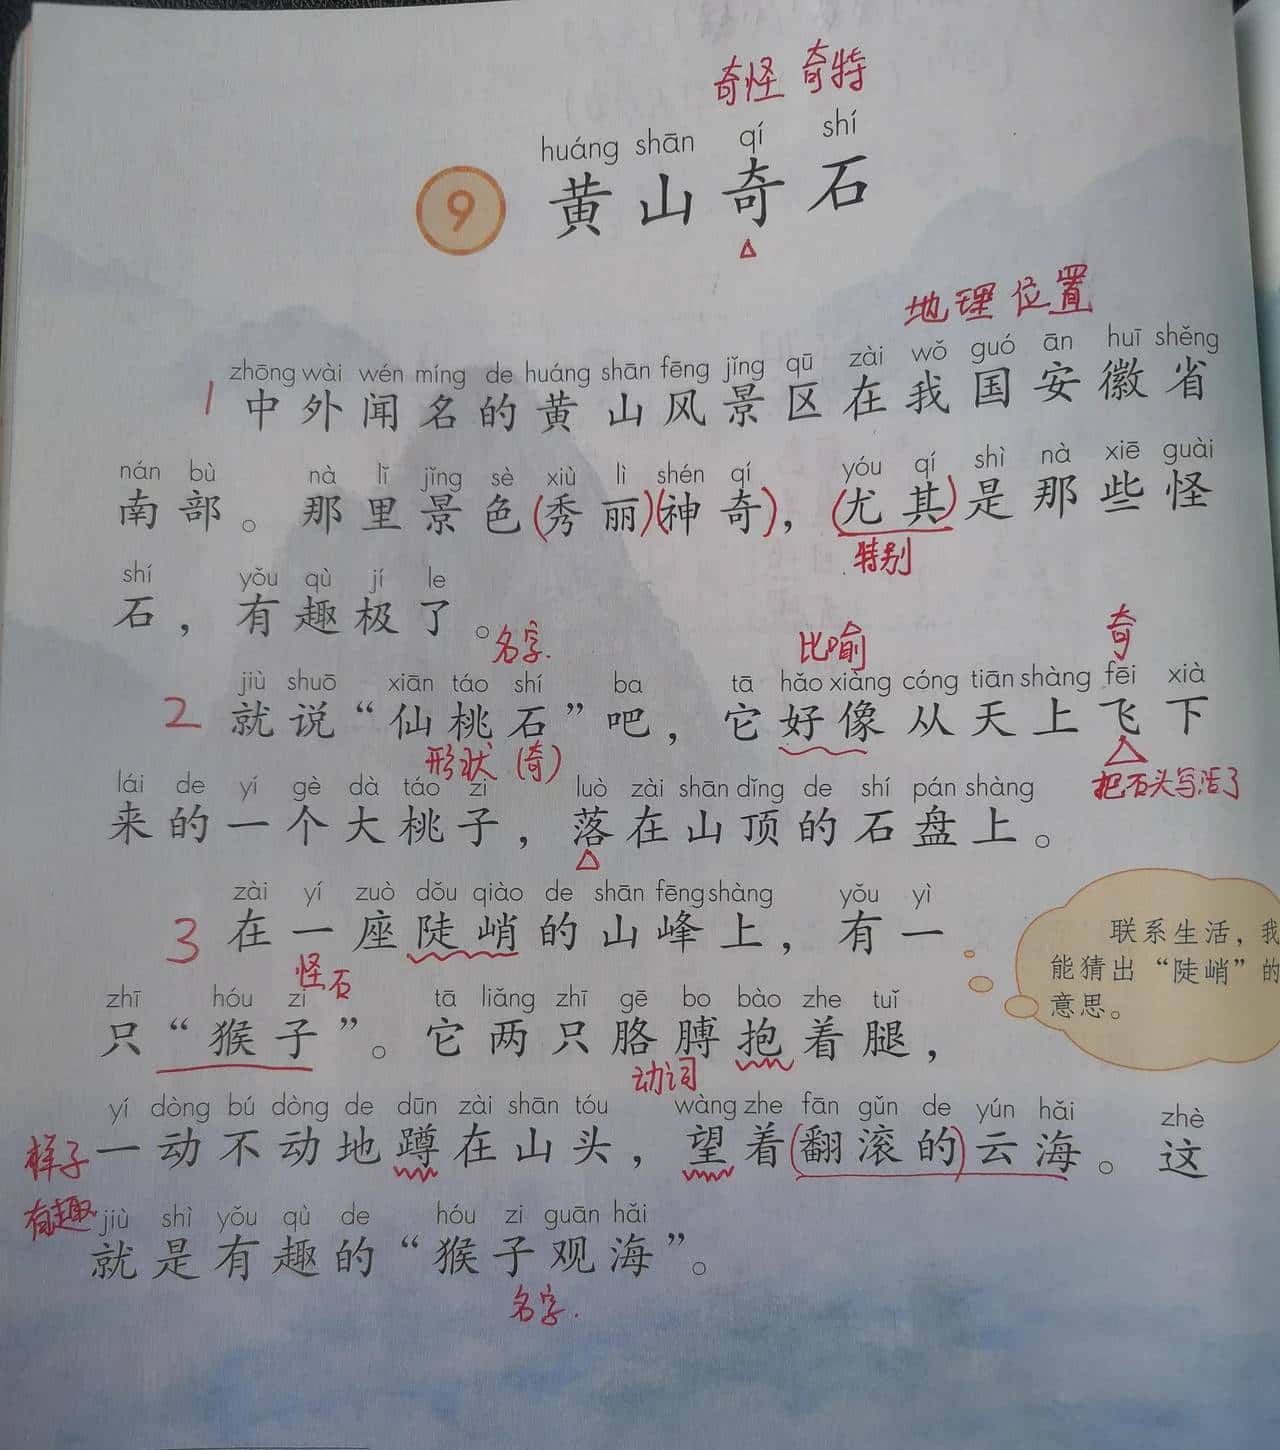 奇怪 奇特
huáng shān qí shí
9 黄山奇石
地理位置
zhōng wài wén míng de huáng shān fēng jǐng qū zài wǒ guó ān huī shěng
1 中外闻名的黄山风景区在我国安徽省
nán bù nà lǐ jǐng sè xiù lì shén qí yóu qí shì nà xiē guài
南部。那里景色(秀丽)(神奇)，(尤其)是那些怪
特别
shí yǒu qù jí le
石，有趣极了。
名字. 比喻 奇
jiù shuō xiān táo shí ba tā hǎo xiàng cóng tiān shàng fēi xià
2 就说“仙桃石”吧，它好像从天上飞下
形状 (奇) 把石头写活了
lái de yí gè dà táo zi luò zài shān dǐng de shí pán shàng
来的一个大桃子，落在山顶的石盘上。
zài yí zuò dǒu qiào de shān fēng shàng yǒu yì
3 在一座陡峭的山峰上，有一
怪石
zhī hóu zi tā liǎng zhī gē bo bào zhe tuǐ
只“猴子”。它两只胳膊抱着腿，
动词
联系生活，我
能猜出“陡峭”的
意思。
yí dòng bú dòng de dūn zài shān tóu wàng zhe fān gǔn de yún hǎi zhè
一动不动地蹲在山头，望着(翻滚的)云海。这
样子
有趣
jiù shì yǒu qù de hóu zi guān hǎi
就是有趣的“猴子观海”。
名字.